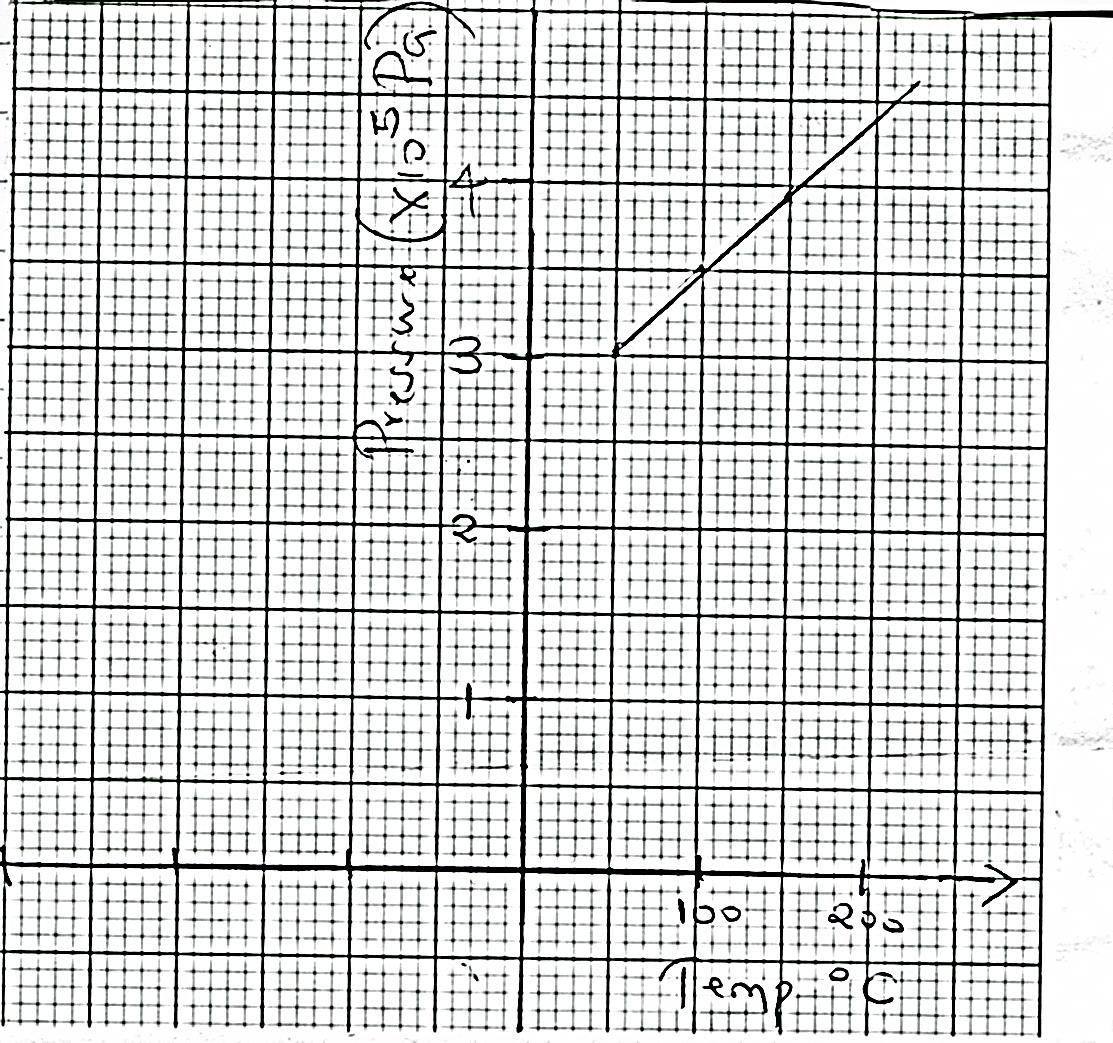 Pressure (X10⁵Pa)
4
3
2
1
100
200
Temp °C